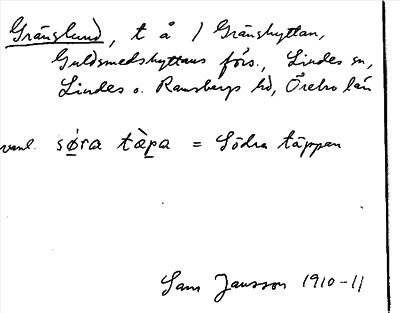 Gränslund, t å / Gränshyttan,
Guldsmedshyttans förs., Lindes sn,
Lindes o. Ramsbergs hd, Örebro län
vanl. sø̱ra tàp̱a = Södra täppan
Sam Jansson 1910-11